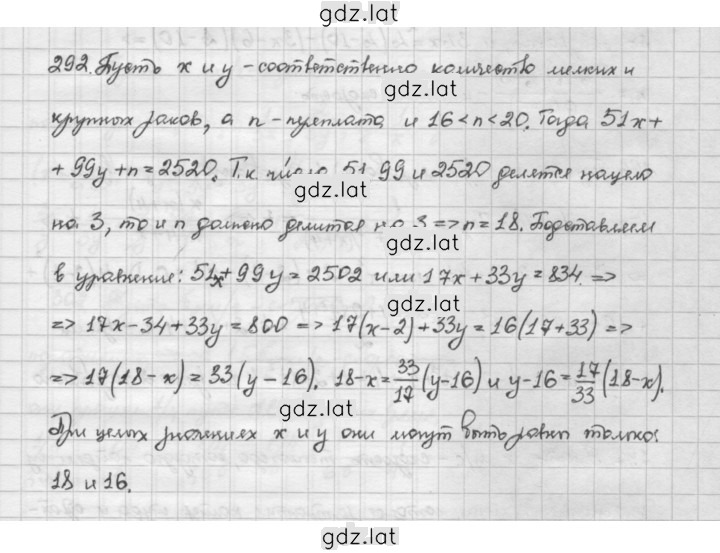 gdz.lat
292. Пусть x и y - соответственно количество мелких и
gdz.lat
крупных заков, а n - переплата и 16 < n < 20. Тогда 51x +
+ 99y + n = 2520. Т.к. числа 51, 99 и 2520 делятся нацело
gdz.lat
на 3, то и n должно делится на 3 => n = 18. Подставляем
gdz.lat
в уравнение: 51x + 99y = 2502 или 17x + 33y = 834. =>
gdz.lat
=> 17x - 34 + 33y = 800 => 17(x - 2) + 33y = 16(17 + 33) =>
=> 17(18 - x) = 33(y - 16). 18 - x = 33/17 (y - 16) и y - 16 = 17/33 (18 - x).
gdz.lat
При целых значениях x и y они могут быть равны только:
18 и 16.
gdz.lat